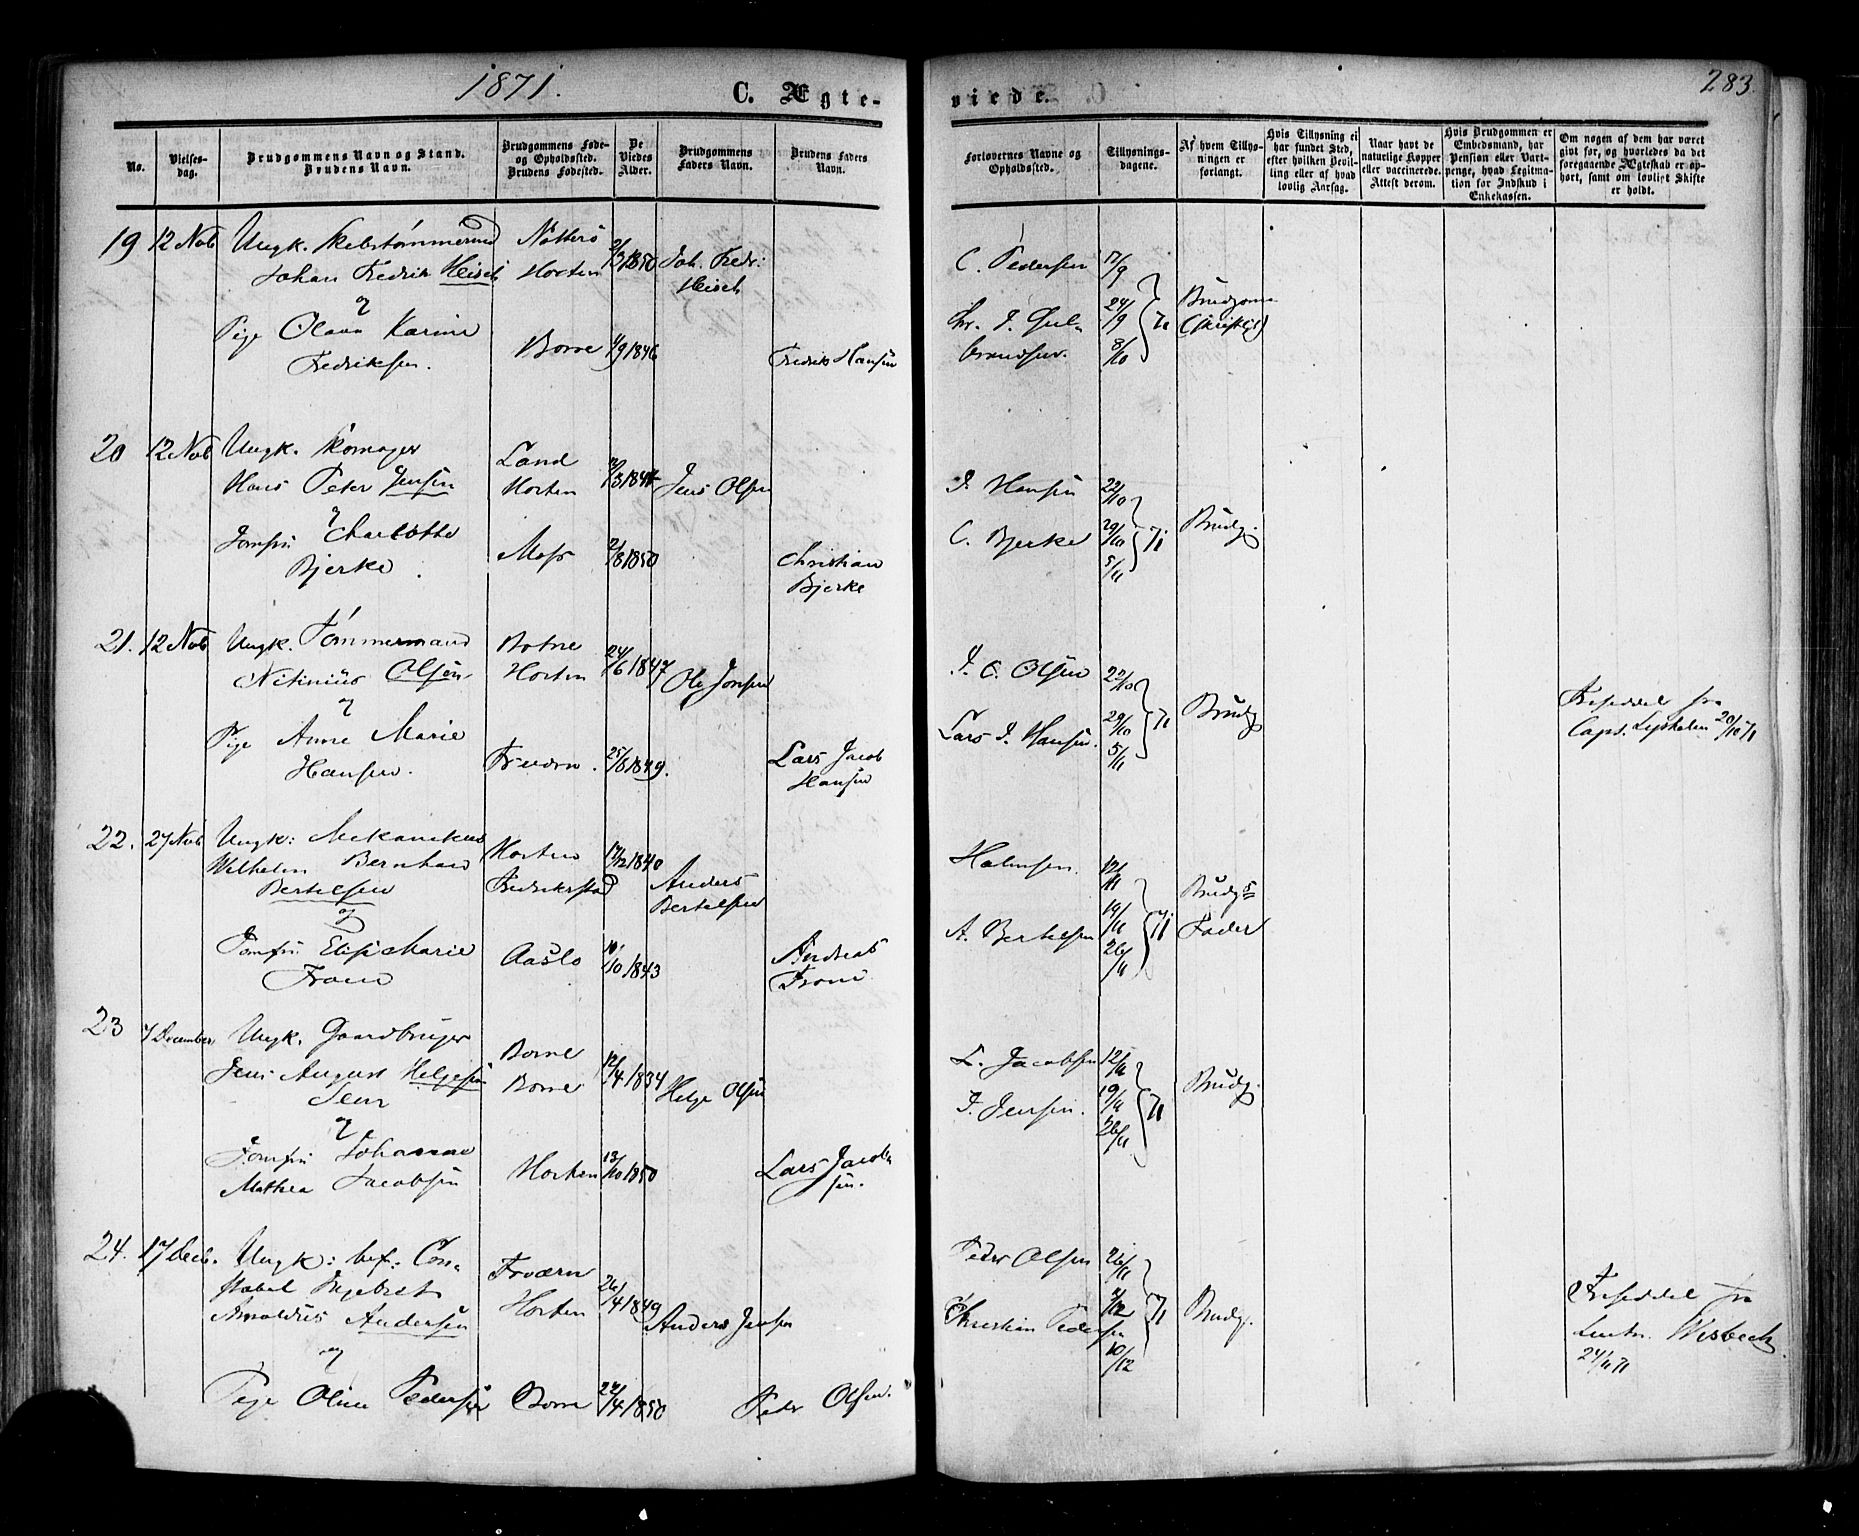 1871.
C. Ægte-
viede.
283.
No.
Vielses-
dag.
Brudgommens Navn og Stand.
Brudens Navn.
Brudgommens Føde-
og Opholdssted.
Brudens Fødested.
De
Viedes
Alder.
Brudgommens
Faders Navn.
Brudens Faders
Navn.
Forlovernes Navne og
Opholdssted.
Tillysnings-
dagene.
Af hvem Tillys-
ningen er
forlangt.
Hvis Tillysning ei
har fundet Sted,
efter hvilken Bevil-
ling eller af hvad
lovlig Aarsag.
Naar havt de
naturlige Kopper
eller vaccinerede.
Attest derom.
Hvis Brudgommen er
Embedsmand, har
Pension eller Vart-
penge, hvad Legitima-
tion for Indskud i
Enkekassen.
Om nogen af dem har været
givt før, og hvorledes da det
foregaaende Ægteskab er op-
hørt, samt om lovligt Skifte
er holdt.
19 12 Nob Ungk. Skibstømmermd Nøtterø
Johan Fredrik Heisch Horten 2/3 1850 Joh. Fredr: C. Pedersen 17/9
Heisch
& Chr. J. Gul- 24/9 71 Brudgom
Pige Olava Karine (skriftligt)
Fredriksen. Borre 1/9 1846 Fredrik Hansen brandsen. 8/10
20 12 Nob Ungk. Skomager Land
Hans Peter Jensen Horten Jens Olsen J. Hansen 22/10
& Charlotte C. Bjerke 29/10 71 Brudg.
Jomfru
Bjerke. Moss 2/8 1850 Christian 5/11
Bjerke
21. 12 Nob Ungk. Tømmermand Botne
Nitinius Olsen Horten 24/6 1847 Ole Jonsen J. C. Olsen 22/10
& Lars J. Hansen. 29/10 71 Brudg. Friseddel fra
Pige Anne Marie Caps. 20/10 71
Hansen. Fruern. 25/8 1849. Lars Jacob 5/11
Hansen
22. 27 Nob Ungk: Mekanikus Horten 17/12 1840 Holmsen. 12/11
Wilhelm Bernhard Fredrikstad Anders Brudgs
Bertelsen Bertelsen
& A. Bertelsen 19/11 71 Fader
Jomfru Elise Marie Aaslo 10/10 1843 Andreas 26/11
From From
23 7 December Ungk. Gaardbruger Borre
Jens August Helgesen Borre 12/4 1834 Helge Olsen L. Jacobsen 12/11
Seur J. Jensen. 19/11 71 Brudg.
& 26/11
Jomfru Johanne Horten 13/10 1850 Lars Jacob-
Mathea Jacobsen sen.
24. 17 Decb. Ungk: bef: Con- Frværn Peder Olsen 26/11
stabel Ingebret Horten 26/4 1849 Anders Jensen Christian Pedersen 3/12 71 Brudg. Friseddel fra
Arnoldus Andersen 10/12 Leutn. Wisbech
& 24/11 71
Pige Oline Pedersen Borre 22/4 1850 Peder Olsen.